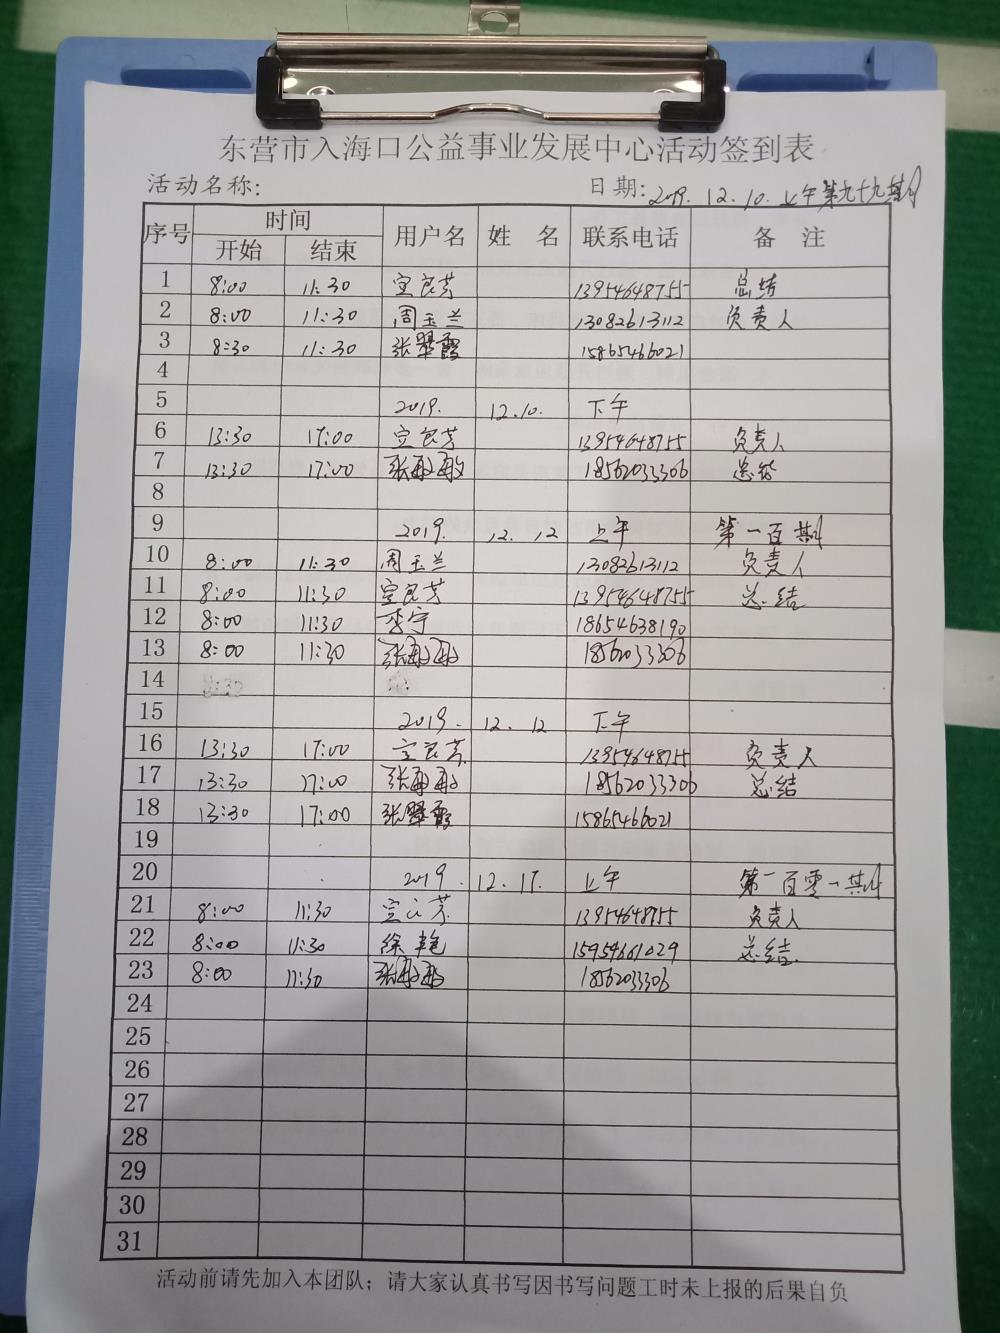 东营市入海口公益事业发展中心活动签到表
活动名称: 日期: 2019. 12. 10. 上午第九十九期
序号 时间 用户名 姓 名 联系电话 备 注
开始 结束
1 8:00 11:30 宣良芳 13954648755 总结
2 8:00 11:30 周玉兰 13082613112 负责人
3 8:30 11:30 张翠霞 15865466021
4
5 2019. 12.10. 下午
6 13:30 17:00 宣良芳 13954648755 负责人
7 13:30 17:00 张敏敏 18562033306 总结
8
9 2019. 12. 12 上午 第一百期
10 8:00 11:30 周玉兰 13082613112 负责人
11 8:00 11:30 宣良芳 13954648755 总结
12 8:00 11:30 李宁 18654638190
13 8:00 11:30 张敏敏 18562033306
14
15 2019. 12. 12 下午
16 13:30 17:00 宣良芳 13954648755 负责人
17 13:30 17:00 张敏敏 18562033306 总结
18 13:30 17:00 张翠霞 15865466021
19
20 2019. 12.17. 上午 第一百零一期
21 8:00 11:30 宣良芳 13954648755 负责人
22 8:00 11:30 徐艳 15954661029 总结
23 8:00 11:30 张敏敏 18562033306
24
25
26
27
28
29
30
31
活动前请先加入本团队；请大家认真书写因书写问题工时未上报的后果自负